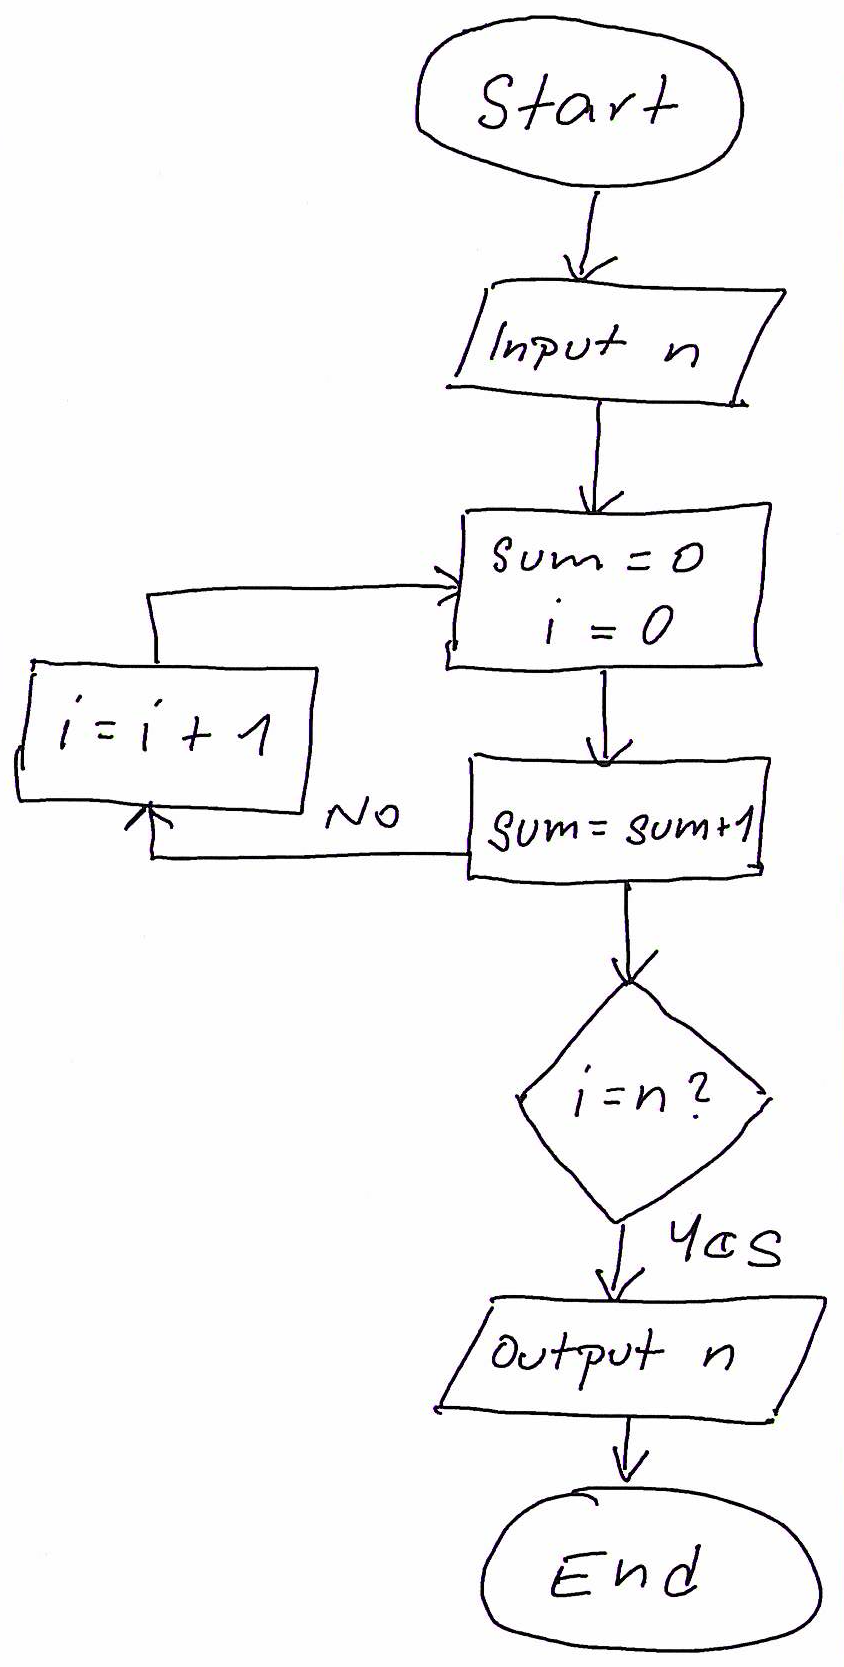 Start
Input n
sum = 0
i = 0
i = i + 1
NO
sum = sum+1
i = n ?
Yes
Output n
End